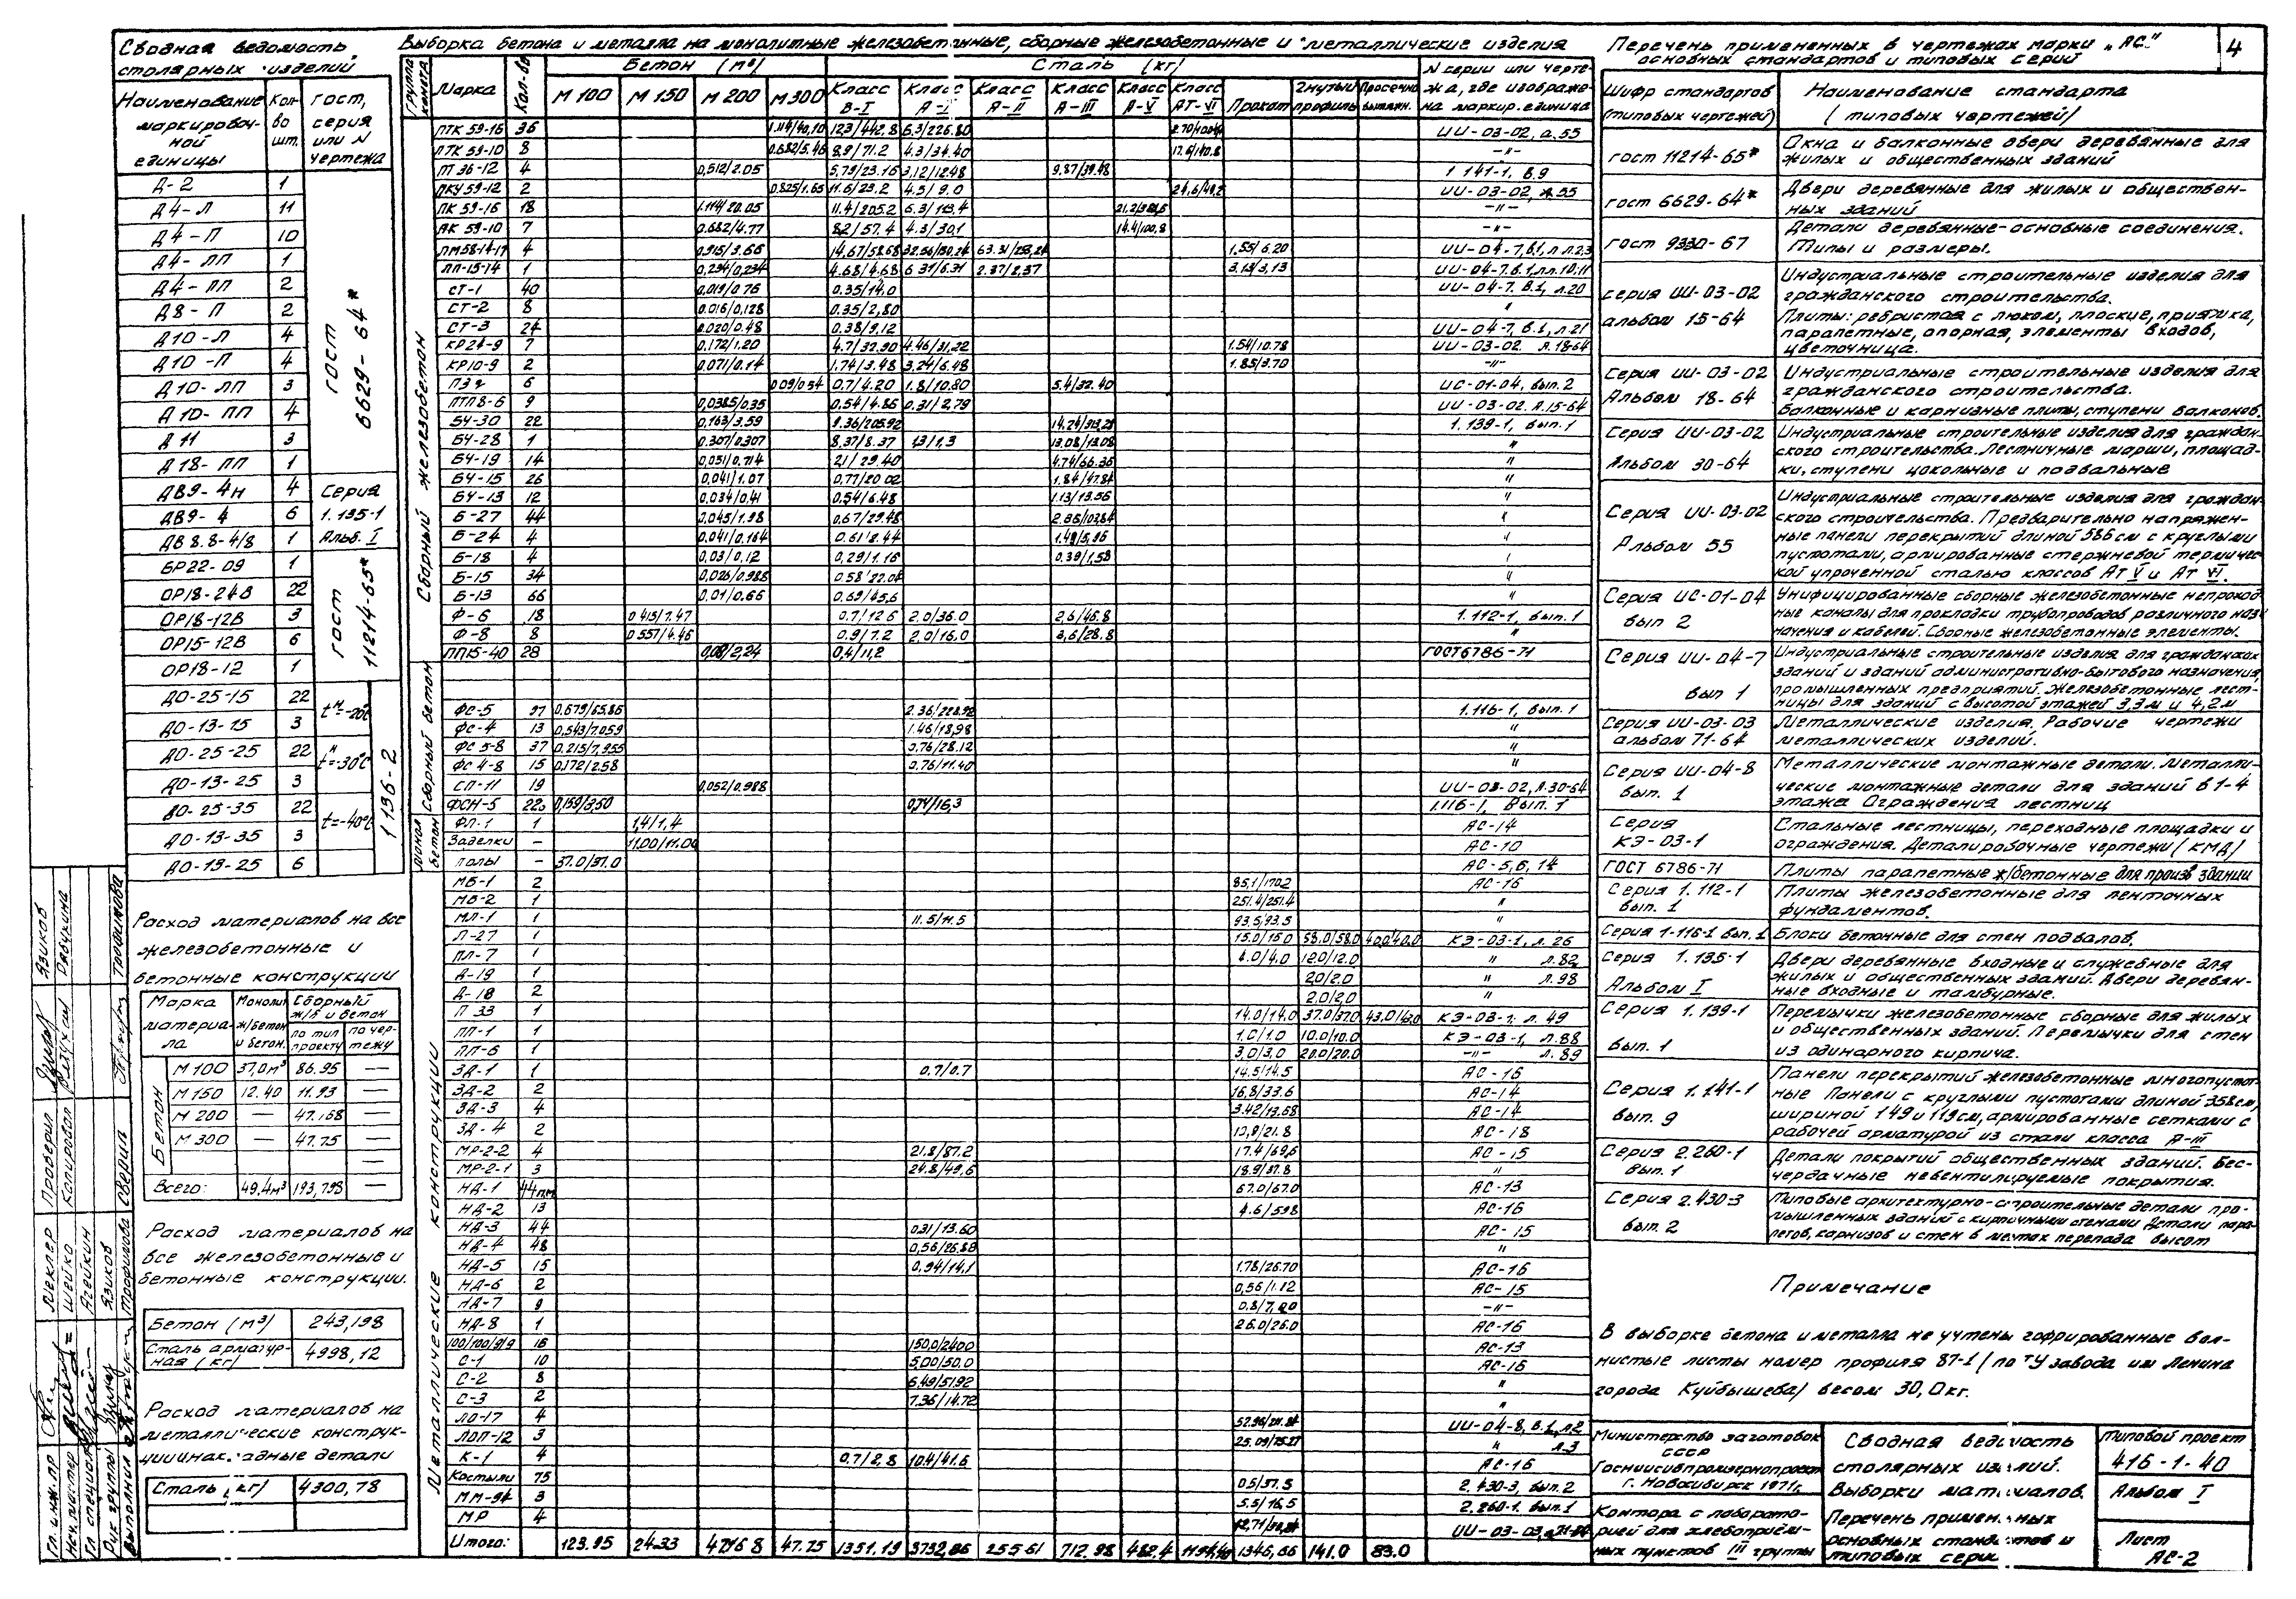 4
Сводная ведомость
столярных изделий
Наименование маркировочной единицы | Кол-во шт. | ГОСТ, серия или N чертежа
Д-2 1
Д4-Л 11
Д4-П 10
Д4-ЛП 1
Д4-ПП 2
Д8-П 2
Д10-Л 4
Д10-П 4
Д10-ЛП 3
Д10-ПП 4
Д11 3
Д18-ПП 1
ГОСТ 6629-64*
ДВ9-4н 4
ДВ9-4 6
ДВ8.8-4/8 1
Серия
1.135-1
Альб. I
БР22-09 1
ОР18-24В 22
ОР18-12В 3
ОР15-12В 6
ОР18-12 1
ГОСТ 11214-65*
ДО-25-15 22
ДО-13-15 3
tн=-20°С
ДО-25-25 22
ДО-13-25 3
tн=-30°С
ДО-25-35 22
ДО-13-35 3
t=-40°С
ДО-13-25 6
1 136-2
Расход материалов на все
железобетонные и
бетонные конструкции
Марка материала | Монолит ж/бетон и бетон. | Сборный ж/б и бетон
по тип проекту | по чертежу
Бетон
М 100 37,0м³ 86.95 —
М 150 12.40 11.93 —
М 200 — 47.168 —
М 300 — 47.75 —
—
Всего: 49.4м³ 193,798 —
Расход материалов на
все железобетонные и
бетонные конструкции.
Бетон (м³) 243,198
Сталь арматурная (кг) 4998,12
Расход материалов на
металлические конструк-
Сталь (кг) 4300,78
Выборка бетона и металла на монолитные железобетонные, сборные железобетонные и металлические изделия
Группа | Марка | Кол-во | Бетон (м³) | Сталь (кг) | N серии или чертежа, где изображена маркир. единица
М 100 | М 150 | М 200 | М 300 | Класс В-I | Класс А-I | Класс А-II | Класс А-III | Класс А-V | Класс АТ-VI | Прокат | Гнутый профиль
Сборный железобетон
ПТК 59-16 36 12.3/442.8 6.3/226.80 ИИ-03-02, а.55
ПТК 59-10 8 0.682/5.46 8.9/71.2 4.3/34.40 17.6/140.8 -"-
ПТ 36-12 4 0,512/2.05 5,79/23.16 3,12/12.48 9.87/39.48 1 141-1, в.9
ПКУ 59-12 2 0.825/1.65 11.6/23.2 4.5/9.0 24,6/49,2 ИИ-03-02, а.55
ПК 59-16 18 1.114/20.05 11.4/205.2 6.3/113.4 -"-
ПК 59-10 7 0.682/4.77 8.2/57.4 4.3/30.1 14.4/100,8 -"-
ЛМ58-14-17 4 0.915/3.66 14.67/58.68 1.55/6.20 ИИ-04-7,в.1, л л.2,3
ЛП-15-14 1 0,234/0,234 4.68/4.68 6 31/6.31 2.37/2.37 3.13/3,13 ИИ-04-7.в.1,лл.10,11
СТ-1 40 0,019/0.76 0.35/14,0 ИИ-04-7. В.1, л.20
СТ-2 8 0.016/0,128 0.35/2,80 "
СТ-3 24 0.020/0.48 0.38/9.12 ИИ-04-7, в.1, л.21
КР24-9 7 0.172/1.20 4.7/32.90 4.46/31,22 1.54/10.78 ИИ-03-02. А.18-64
КР10-9 2 0.071/0.14 1.74/3.48 3.24/6.48 1.85/3.70 -"-
6 0.09/0.54 0.7/4.20 1.8/10.80 5.4/32.40 ИС-01-04, вып. 2
ПТП8-6 9 0,0385/0.35 0.54/4.86 0.31/2,79 ИИ-03-02. А.15-64
БУ-30 22 0,163/3.59 9.36/205.92 1.139-1, вып.1
БУ-28 1 0.307/0.307 8,37/8.37 1,3/1,3 13.08/13.08 "
БУ-19 14 0,051/0,714 2.1/29.40 4.74/66.36 "
БУ-15 26 0,041/1.07 0.77/20 02 1.84/47.84 "
БУ-13 12 0.034/0,41 0,54/6.48 1.13/13.56 "
Б-27 44 0,045/1.98 0.67/29.48 "
Б-24 4 0,041/0,164 0.61/2.44 1.49/5,96 "
Б-18 4 0,03/0,12 0,29/1.16 0.39/1,58 "
Б-15 34 "
Б-13 66 0,01/0.66 0.69/45,6 "
Ф-6 18 0 415/7.47 0.7/12 6 2.0/36.0 2,6/46.8 1.112-1, вып. 1
Ф-8 8 0 557/4.46 0.9/7.2 2,0/16,0 3,6/28.8 "
ПП15-40 28 0,08/2,24 0,4/11,2 ГОСТ6786-71
Сборный бетон
ФС-5 97 0.679/65.86 2.36/228.92 1.116-1, вып. 1
ФС-4 13 0,543/7.059 1.46/18,98 "
ФС 5-8 37 0.215/7,955 0.76/28.12 "
ФС 4-8 15 0,172/2.58 0.76/11.40 "
СП-11 19 0,052/0.988 ИИ-03-02, А.30-64
ФСН-5 22 0,159/3,50 0,74/16,3 1.116-1, Вып. 1
Монол бетон
ФЛ-1 1 1,4/1,4 АС-14
Заделки — 11.00/11.00 АС-10
Полы — 37.0/37.0 АС-5,6, 14
Металлические конструкции
МБ-1 2 85,1/170,2 АС-16
МБ-2 1 251.4/251.4 "
МЛ-1 1 11.5/11.5 93.5/93.5 "
Л-27 1 15.0/15.0 58.0/58.0 40.0/40.0 КЭ-03-1, л. 26
ПЛ-7 1 4.0/4.0 12.0/12.0 " л.82
Д-19 1 2.0/2.0 " л.98
Д-18 2 2.0/2.0 "
П 33 1 14.0/14.0 37.0/37.0 43.0/43.0 КЭ-03-1, л. 49
ПП-1 1 1.0/1.0 10.0/10.0 КЭ-03-1, л.88
ПП-6 1 3,0/3.0 20.0/20.0 -"- л. 89
ЗД-1 1 0.7/0.7 14.5/14.5 АС-16
ЗД-2 2 16,8/33.6 АС-14
ЗД-3 4 3.42/13.68 АС-14
ЗД-4 2 10,9/21.8 АС-18
МР-2-2 4 21.8/87.2 17.4/69,6 АС-15
МР-2-1 3 24.8/49,6 18.9/37.8 "
НД-1 44 п.м 67.0/67.0 АС-13
НД-2 13 4.6/59.8 АС-16
НД-3 44 0.31/13.60 АС-15
НД-4 48 0,56/26.88 "
НД-5 15 0,94/14,1 1.78/26.70 АС-16
НД-6 2 0,56/1.12 АС-15
НД-7 9 0.8/7,20 -"-
НД-8 1 26.0/26.0 АС-16
100/100/9/9 16 150,0/2400 АС-13
С-1 10 5,00/50,0 АС-16
С-2 8 6,49/51.92 "
С-3 2 7.36/14.72 "
ЛО-17 4 ИИ-04-8, В.1, л.2
ЛОП-12 3 " л.3
К-1 4 0,7/2,8 10.4/41.6 АС-16
Костыли 75 0.5/37.5 2.430-3, вып. 2
ММ-94 3 5.5/16,5 2.260-1. вып.1
МР 4
Итого: 123.95 24.33 47.168 47.75 1351.19 3732,86 255 61 712.98 482.4 1346,66 141.0 83.0
Перечень примененных в чертежах марки „АС"
основных стандартов и типовых серий
Шифр стандартов (типовых чертежей) | Наименование стандарта (типовых чертежей)
ГОСТ 11214-65* Окна и балконные двери деревянные для
жилых и общественных зданий
ГОСТ 6629-64* Двери деревянные для жилых и обществен-
ных зданий
ГОСТ 9330-67 Детали деревянные-основные соединения.
Типы и размеры.
Серия ИИ-03-02 альбом 15-64 Индустриальные строительные изделия для
гражданского строительства.
Плиты: ребристая с люком, плоские, приямка,
парапетные, опорная, элементы входов,
цветочница.
Серия ИИ-03-02 Альбом 18-64 Индустриальные строительные изделия для
гражданского строительства.
Балконные и карнизные плиты, ступени балконов.
Серия ИИ-03-02 Альбом 30-64 Индустриальные строительные изделия для граждан-
ского строительства. Лестничные марши, площад-
ки, ступени цокольные и подвальные
Серия ИИ-03-02 Альбом 55 Индустриальные строительные изделия для граждан-
ского строительства. Предварительно напряжен-
ные панели перекрытий длиной 586 см с круглыми
пустотами, армированные стержневой термичес-
кой упрочненной сталью классов Ат V и Ат VI.
Серия ИС-01-04 вып 2 Унифицированные сборные железобетонные непроход-
ные каналы для прокладки трубопроводов различного наз-
начения и кабелей. Сборные железобетонные элементы.
Серия ИИ-04-7 вып 1 Индустриальные строительные изделия для гражданских
зданий и зданий административно-бытового назначения,
промышленных предприятий. Железобетонные лест-
ницы для зданий с высотой этажей 3,3м и 4,2м
Серия ИИ-03-03 альбом 71-64 Металлические изделия. Рабочие чертежи
металлических изделий.
Серия ИИ-04-8 вып. 1 Металлические монтажные детали. Металли-
ческие монтажные детали для зданий в 1-4
этажа Ограждения лестниц
Серия КЭ-03-1 Стальные лестницы, переходные площадки и
ограждения. Деталировочные чертежи (КМД)
ГОСТ 6786-71 Плиты парапетные ж/бетонные для произв зданий
Серия 1.112-1 вып. 1 Плиты железобетонные для ленточных
фундаментов.
Серия 1-116-1 вып. 1 Блоки бетонные для стен подвалов.
Серия 1.135-1 Альбом I Двери деревянные входные и служебные для
жилых и общественных зданий. Двери деревян-
ные входные и тамбурные.
Серия 1.139-1 вып. 1 Перемычки железобетонные сборные для жилых
и общественных зданий. Перемычки для стен
из одинарного кирпича.
Серия 1.141-1 вып. 9 Панели перекрытий железобетонные многопустот-
ные Панели с круглыми пустотами длиной 358см,
шириной 149 и 119 см, армированные сетками с
рабочей арматурой из стали класса А-III
Серия 2.260-1 вып. 1 Детали покрытий общественных зданий. Бес-
чердачные невентилируемые покрытия.
Серия 2.430-3 вып. 2 Типовые архитектурно-строительные детали про-
мышленных зданий с кирпичными стенами Детали пара-
петов, карнизов и стен в местах перепада высот
Примечание
В выборке бетона и металла не учтены гофрированные вол-
нистые листы номер профиля 87-1 (по ТУ завода им Ленина
города Куйбышева) весом 30,0кг.
Министерство заготовок
СССР
Госниисибпромзернопроект
г. Новосибирск 1971г.
Контора с лаборато-
рией для хлебоприём-
ных пунктов III группы
Сводная ведомость
столярных изделий.
Выборки материалов.
Перечень примененных
основных стандартов и
типовых серий
Типовой проект
416-1-40
Альбом I
Лист
АС-2
Гл. инж. пр Меклер
Нач. мастер Шейко
Гл специалист Агейкин
Рук группы Языков
Выполнил Трофимова
Проверил Языков
Копировал Рябухина
Сверил Трофимова